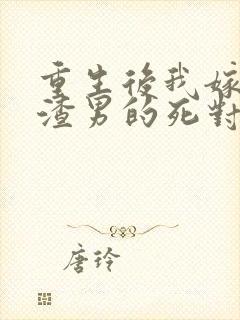 重生後我嫁
渣男的死對
唐玲